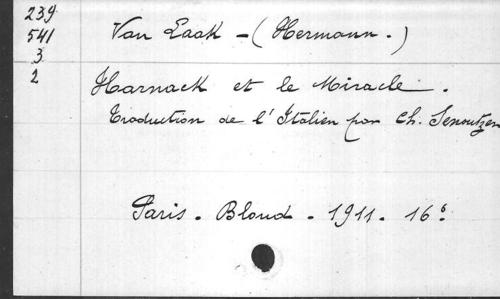 239
541
3
2
Van Laak - (Hermann.)
Harnack et le Miracle.
Traduction de l'Italien par Ch. Senoutzen
Paris. Bloud. 1911. 16°.